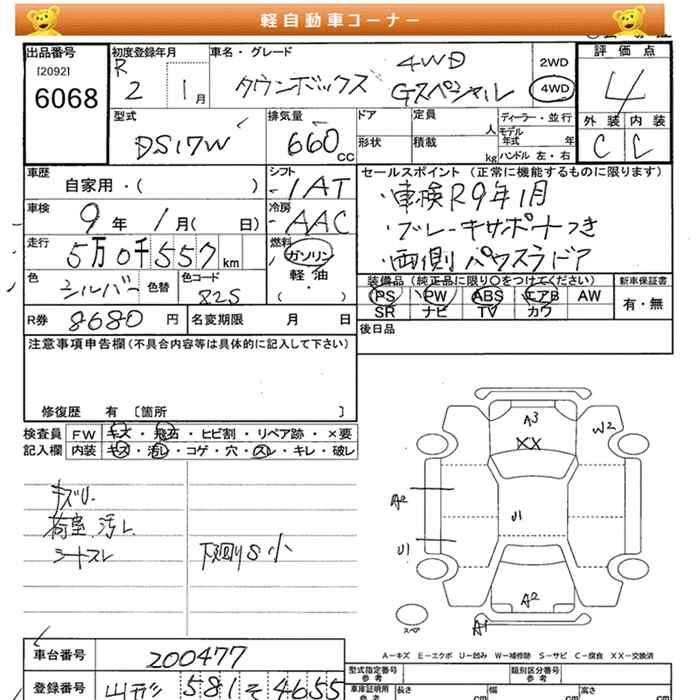 軽自動車コーナー
出品番号
[2092]
6068
初度登録年月
R 2 1月
車名・グレード
タウンボックス 4WD Gスペシャル
2WD
4WD
評価点
4
外装 内装
C C
型式
DS17W
排気量
660 CC
ドア
定員 人
ディーラー・並行
モデル年式 年
形状
積載 kg
ハンドル 左・右
車歴
自家用・( )
シフト
IAT
セールスポイント (正常に機能するものに限ります)
・車検R9年1月
・ブレーキサポートつき
・両側パワスラドア
車検
9年1月( 日)
冷房
AAC
走行
5万0千557km
燃料
ガソリン
軽油
( ・ )
色
シルバー 色替
色コード
825
装備品 (純正品に限り○をつけてください)
PS PW ABS エアB AW
SR ナビ TV カワ
新車保証書
有・無
R券 8680円
名変期限 月 日
後日品
注意事項申告欄(不具合内容等は具体的に記入して下さい)
修復歴 有 〔箇所 〕
検査員記入欄
FW キズ・飛石・ヒビ割・リペア跡・×要
内装 キズ・汚レ・コゲ・穴・スレ・キレ・破レ
キズU.
荷室汚レ
シートスレ
下廻りS小
A3
XX
W2
A2
U1
U1
A2
スペア
A1
A-キズ E-エクボ U-凹み W-補修跡 S-サビ C-腐食 XX-交換済
車台番号
200477
登録番号
山形 581 そ 4655
型式指定番号
参考
類別区分番号
参考
車庫証明用
参考
長さ cm
幅 cm
高さ cm